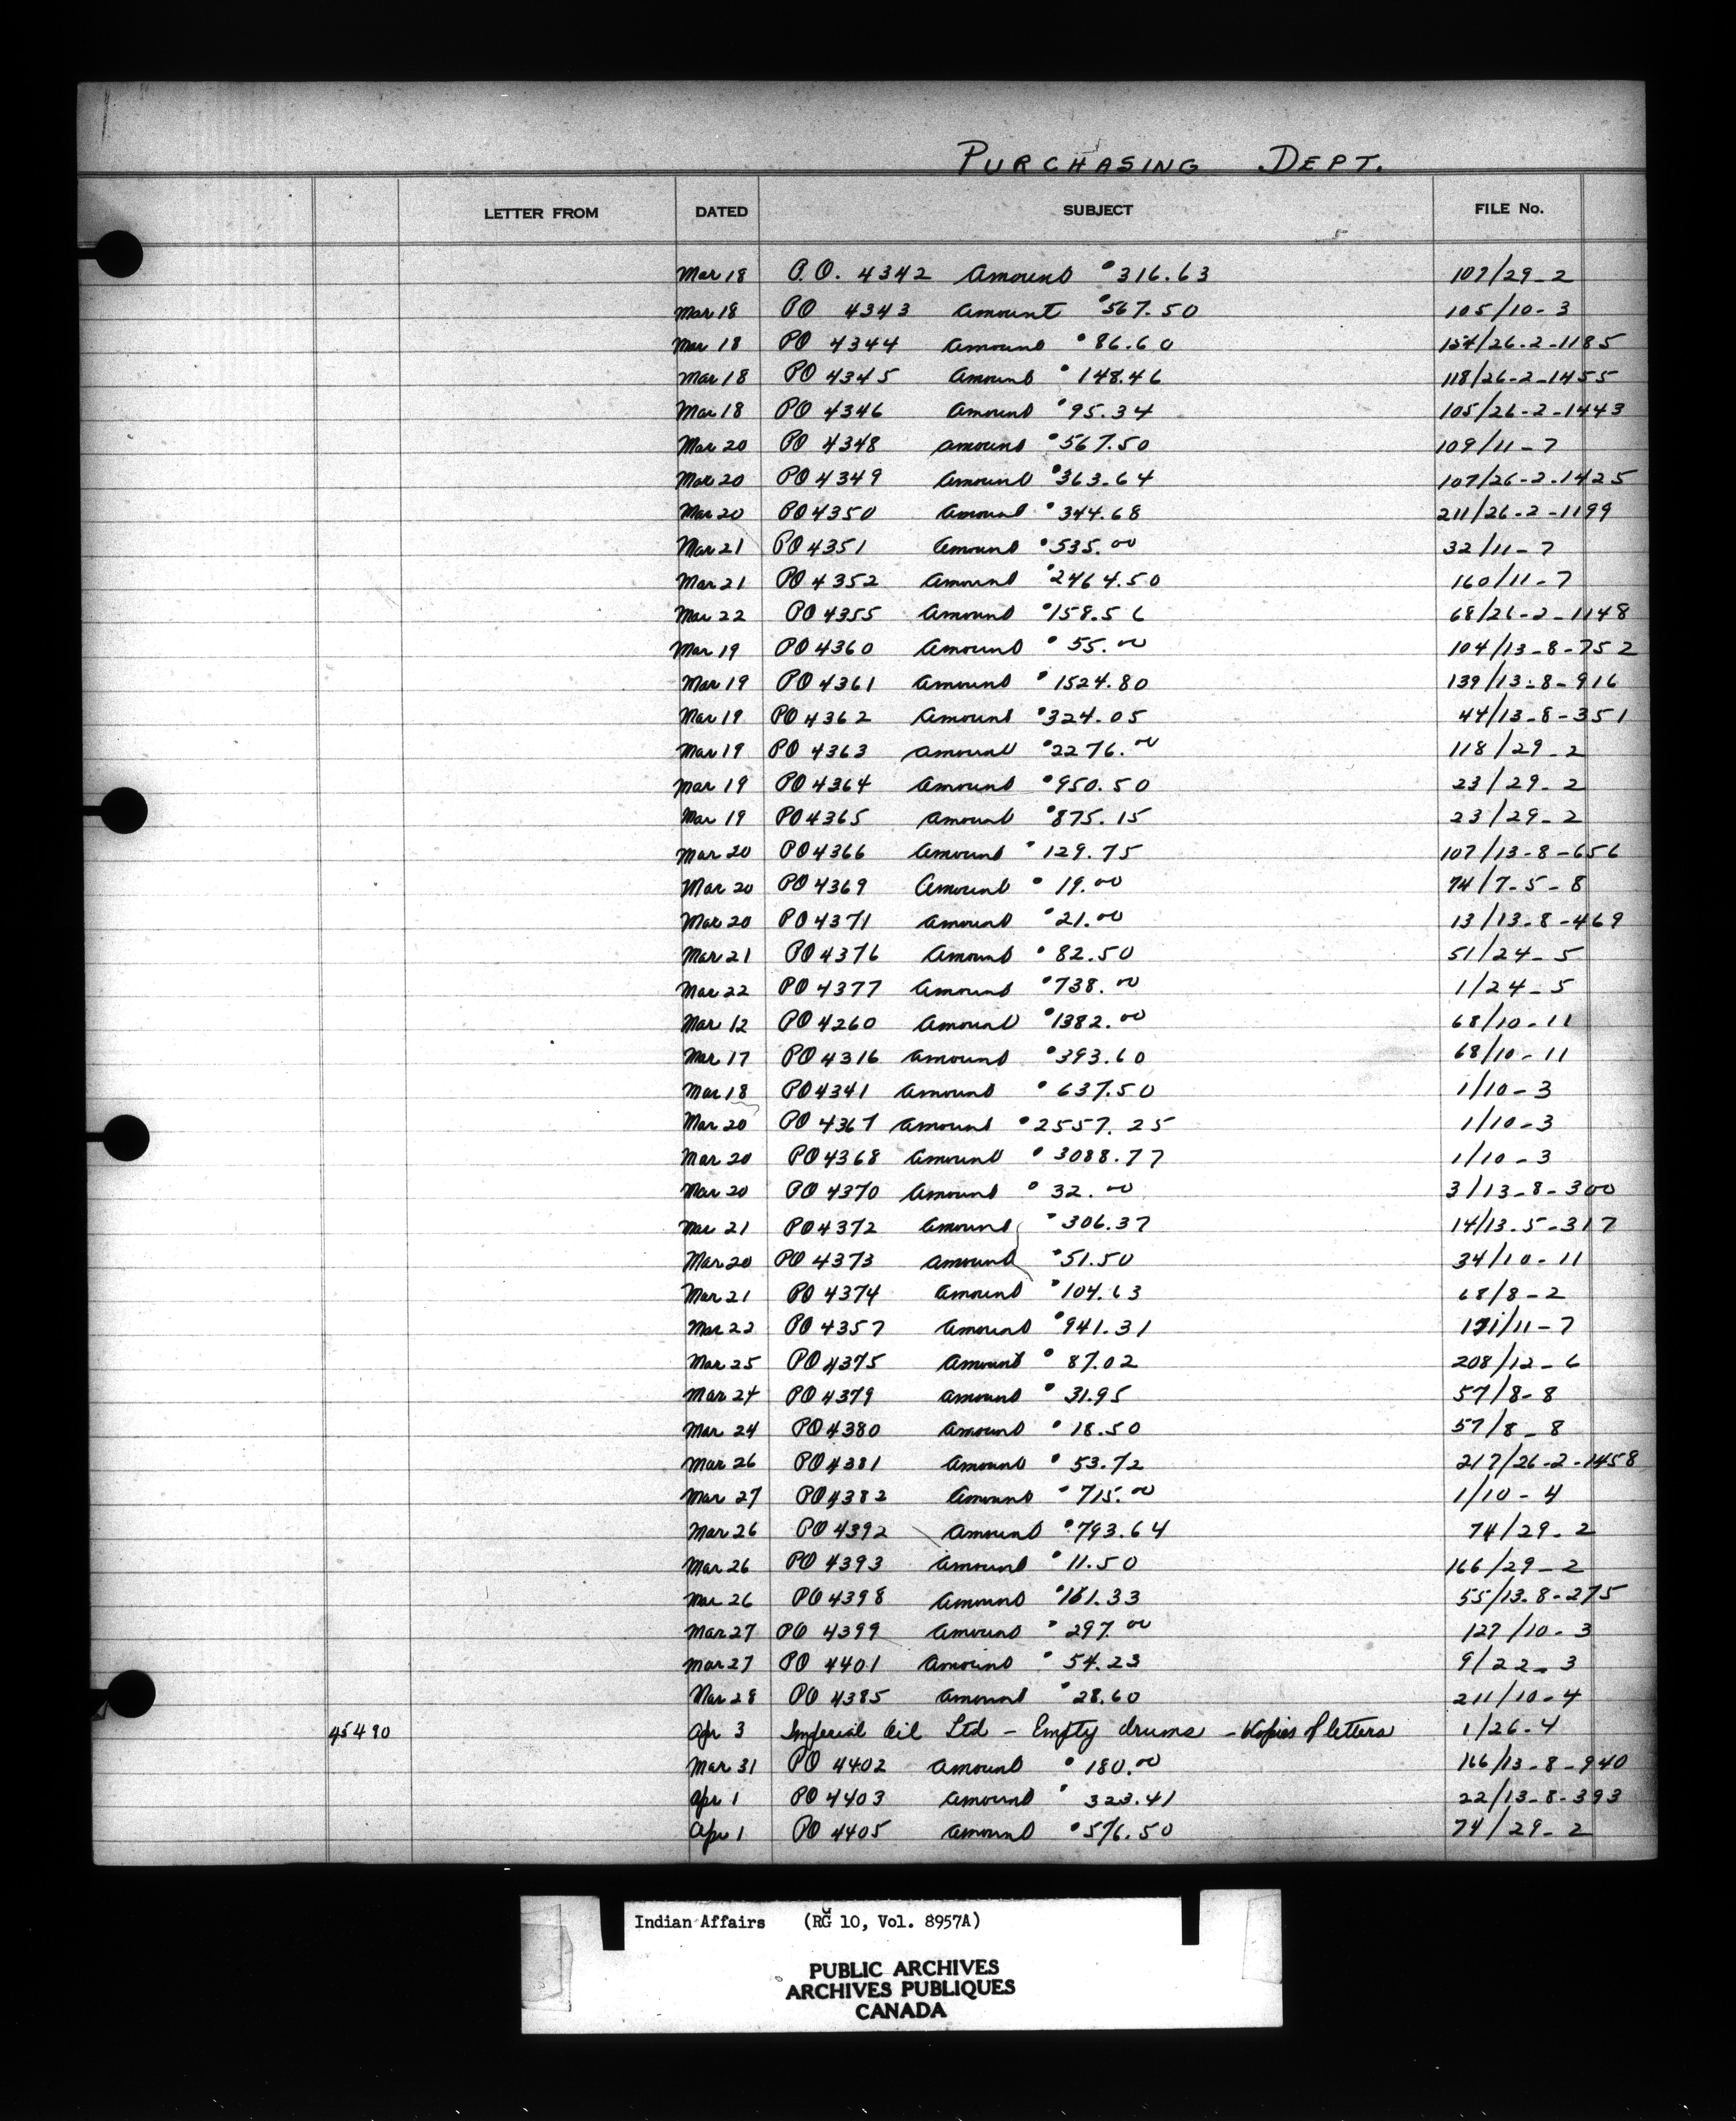 PURCHASING DEPT.
LETTER FROM DATED SUBJECT FILE No.
Mar 18 P.O. 4342 Amount $316.63 107/29-2
Mar 18 PO 4343 Amount $567.50 105/10-3
Mar 18 PO 4344 Amount $86.60 154/26-2-1185
Mar 18 PO 4345 Amount $148.46 118/26-2-1455
Mar 18 PO 4346 Amount $95.34 105/26-2-1443
Mar 20 PO 4348 Amount $567.50 109/11-7
Mar 20 PO 4349 Amount $363.64 107/26-2-1425
Mar 20 PO 4350 Amount $344.68 211/26-2-1199
Mar 21 PO 4351 Amount $535.00 32/11-7
Mar 21 PO 4352 Amount $2464.50 160/11-7
Mar 22 PO 4355 Amount $158.56 68/26-2-1148
Mar 19 PO 4360 Amount $55.00 104/13-8-752
Mar 19 PO 4361 Amount $1524.80 139/13-8-916
Mar 19 PO 4362 Amount $324.05 44/13-8-351
Mar 19 PO 4363 Amount $2276.00 118/29-2
Mar 19 PO 4364 Amount $950.50 23/29-2
Mar 19 PO 4365 Amount $875.15 23/29-2
Mar 20 PO 4366 Amount $129.75 107/13-8-656
Mar 20 PO 4369 Amount $19.00 74/7-5-8
Mar 20 PO 4371 Amount $21.00 13/13-8-469
Mar 21 PO 4376 Amount $82.50 51/24-5
Mar 22 PO 4377 Amount $738.00 1/24-5
Mar 12 PO 4260 Amount $1382.00 68/10-11
Mar 17 PO 4316 Amount $393.60 68/10-11
Mar 18 PO 4341 Amount $637.50 1/10-3
Mar 20 PO 4367 Amount $2557.25 1/10-3
Mar 20 PO 4368 Amount $3088.77 1/10-3
Mar 20 PO 4370 Amount $32.00 3/13-8-300
Mar 21 PO 4372 Amount $306.37 14/13-5-317
Mar 20 PO 4373 Amount $51.50 34/10-11
Mar 21 PO 4374 Amount $104.63 68/8-2
Mar 22 PO 4357 Amount $941.31 /11-7
Mar 25 PO 4375 Amount $87.02 208/12-6
Mar 24 PO 4379 Amount $31.95 57/8-8
Mar 24 PO 4380 Amount $18.50 57/8-8
Mar 26 PO 4381 Amount $53.72 217/26-2-1458
Mar 27 PO 4382 Amount $715.00 1/10-4
Mar 26 PO 4392 Amount $793.64 74/29-2
Mar 26 PO 4393 Amount $11.50 166/29-2
Mar 26 PO 4398 Amount 55/13-8-275
Mar 27 PO 4399 Amount $297.00 127/10-3
Mar 27 PO 4401 Amount $54.23 9/22-3
Mar 28 PO 4385 Amount $28.60 211/10-4
45490 Apr 3 Imperial Oil Ltd - Empty drums - Copies of letters 1/26-4
Mar 31 PO 4402 Amount $180.00 166/13-8-940
Apr 1 PO 4403 Amount $323.41 22/13-8-393
Apr 1 PO 4405 Amount $516.50 74/29-2
Indian Affairs (RG 10, Vol. 8957A)
PUBLIC ARCHIVES
ARCHIVES PUBLIQUES
CANADA